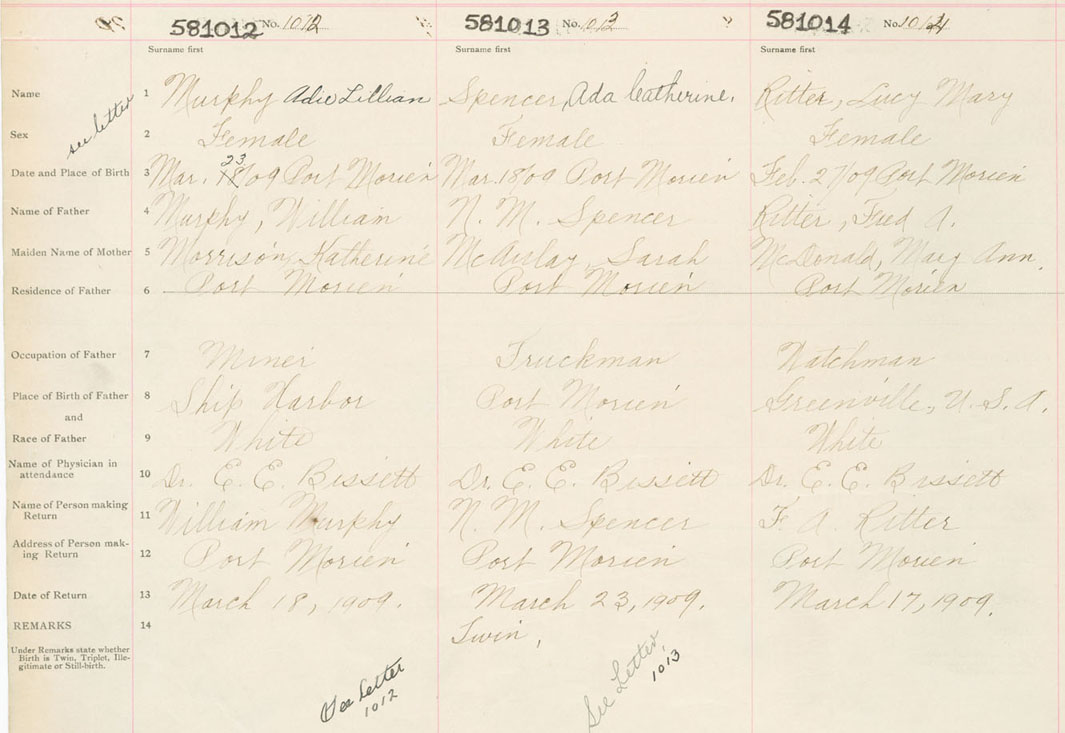 581012 No. 1012 581013 No. 1013 581014 No. 1014
Surname first Surname first Surname first
see letter
Name 1 Murphy Adie Lillian Spencer, Ada Catherine. Ritter, Lucy Mary
Sex 2 Female Female Female
23
Date and Place of Birth 3 Mar. 18/09 Port Morien Mar. 18/09 Port Morien Feb. 27/09 Port Morien
Name of Father 4 Murphy, William N. M. Spencer Ritter, Fred A.
Maiden Name of Mother 5 Morrison, Katherine McAulay, Sarah McDonald, Mary Ann.
Residence of Father 6 Port Morien Port Morien Port Morien
Occupation of Father 7 Miner Truckman Watchman
Place of Birth of Father 8 Ship Harbor Port Morien Greenville, U. S. A.
and
Race of Father 9 White White White
Name of Physician in
attendance 10 Dr. E. E. Bissett Dr. E. E. Bissett Dr. E. E. Bissett
Name of Person making
Return 11 William Murphy N. M. Spencer F. A. Ritter
Address of Person mak-
ing Return 12 Port Morien Port Morien Port Morien
Date of Return 13 March 18, 1909. March 23, 1909. March 17, 1909.
REMARKS 14 Twin,
Under Remarks state whether
Birth is Twin, Triplet, Ille-
gitimate or Still-birth.
See Letter
1012
See Letter,
1013